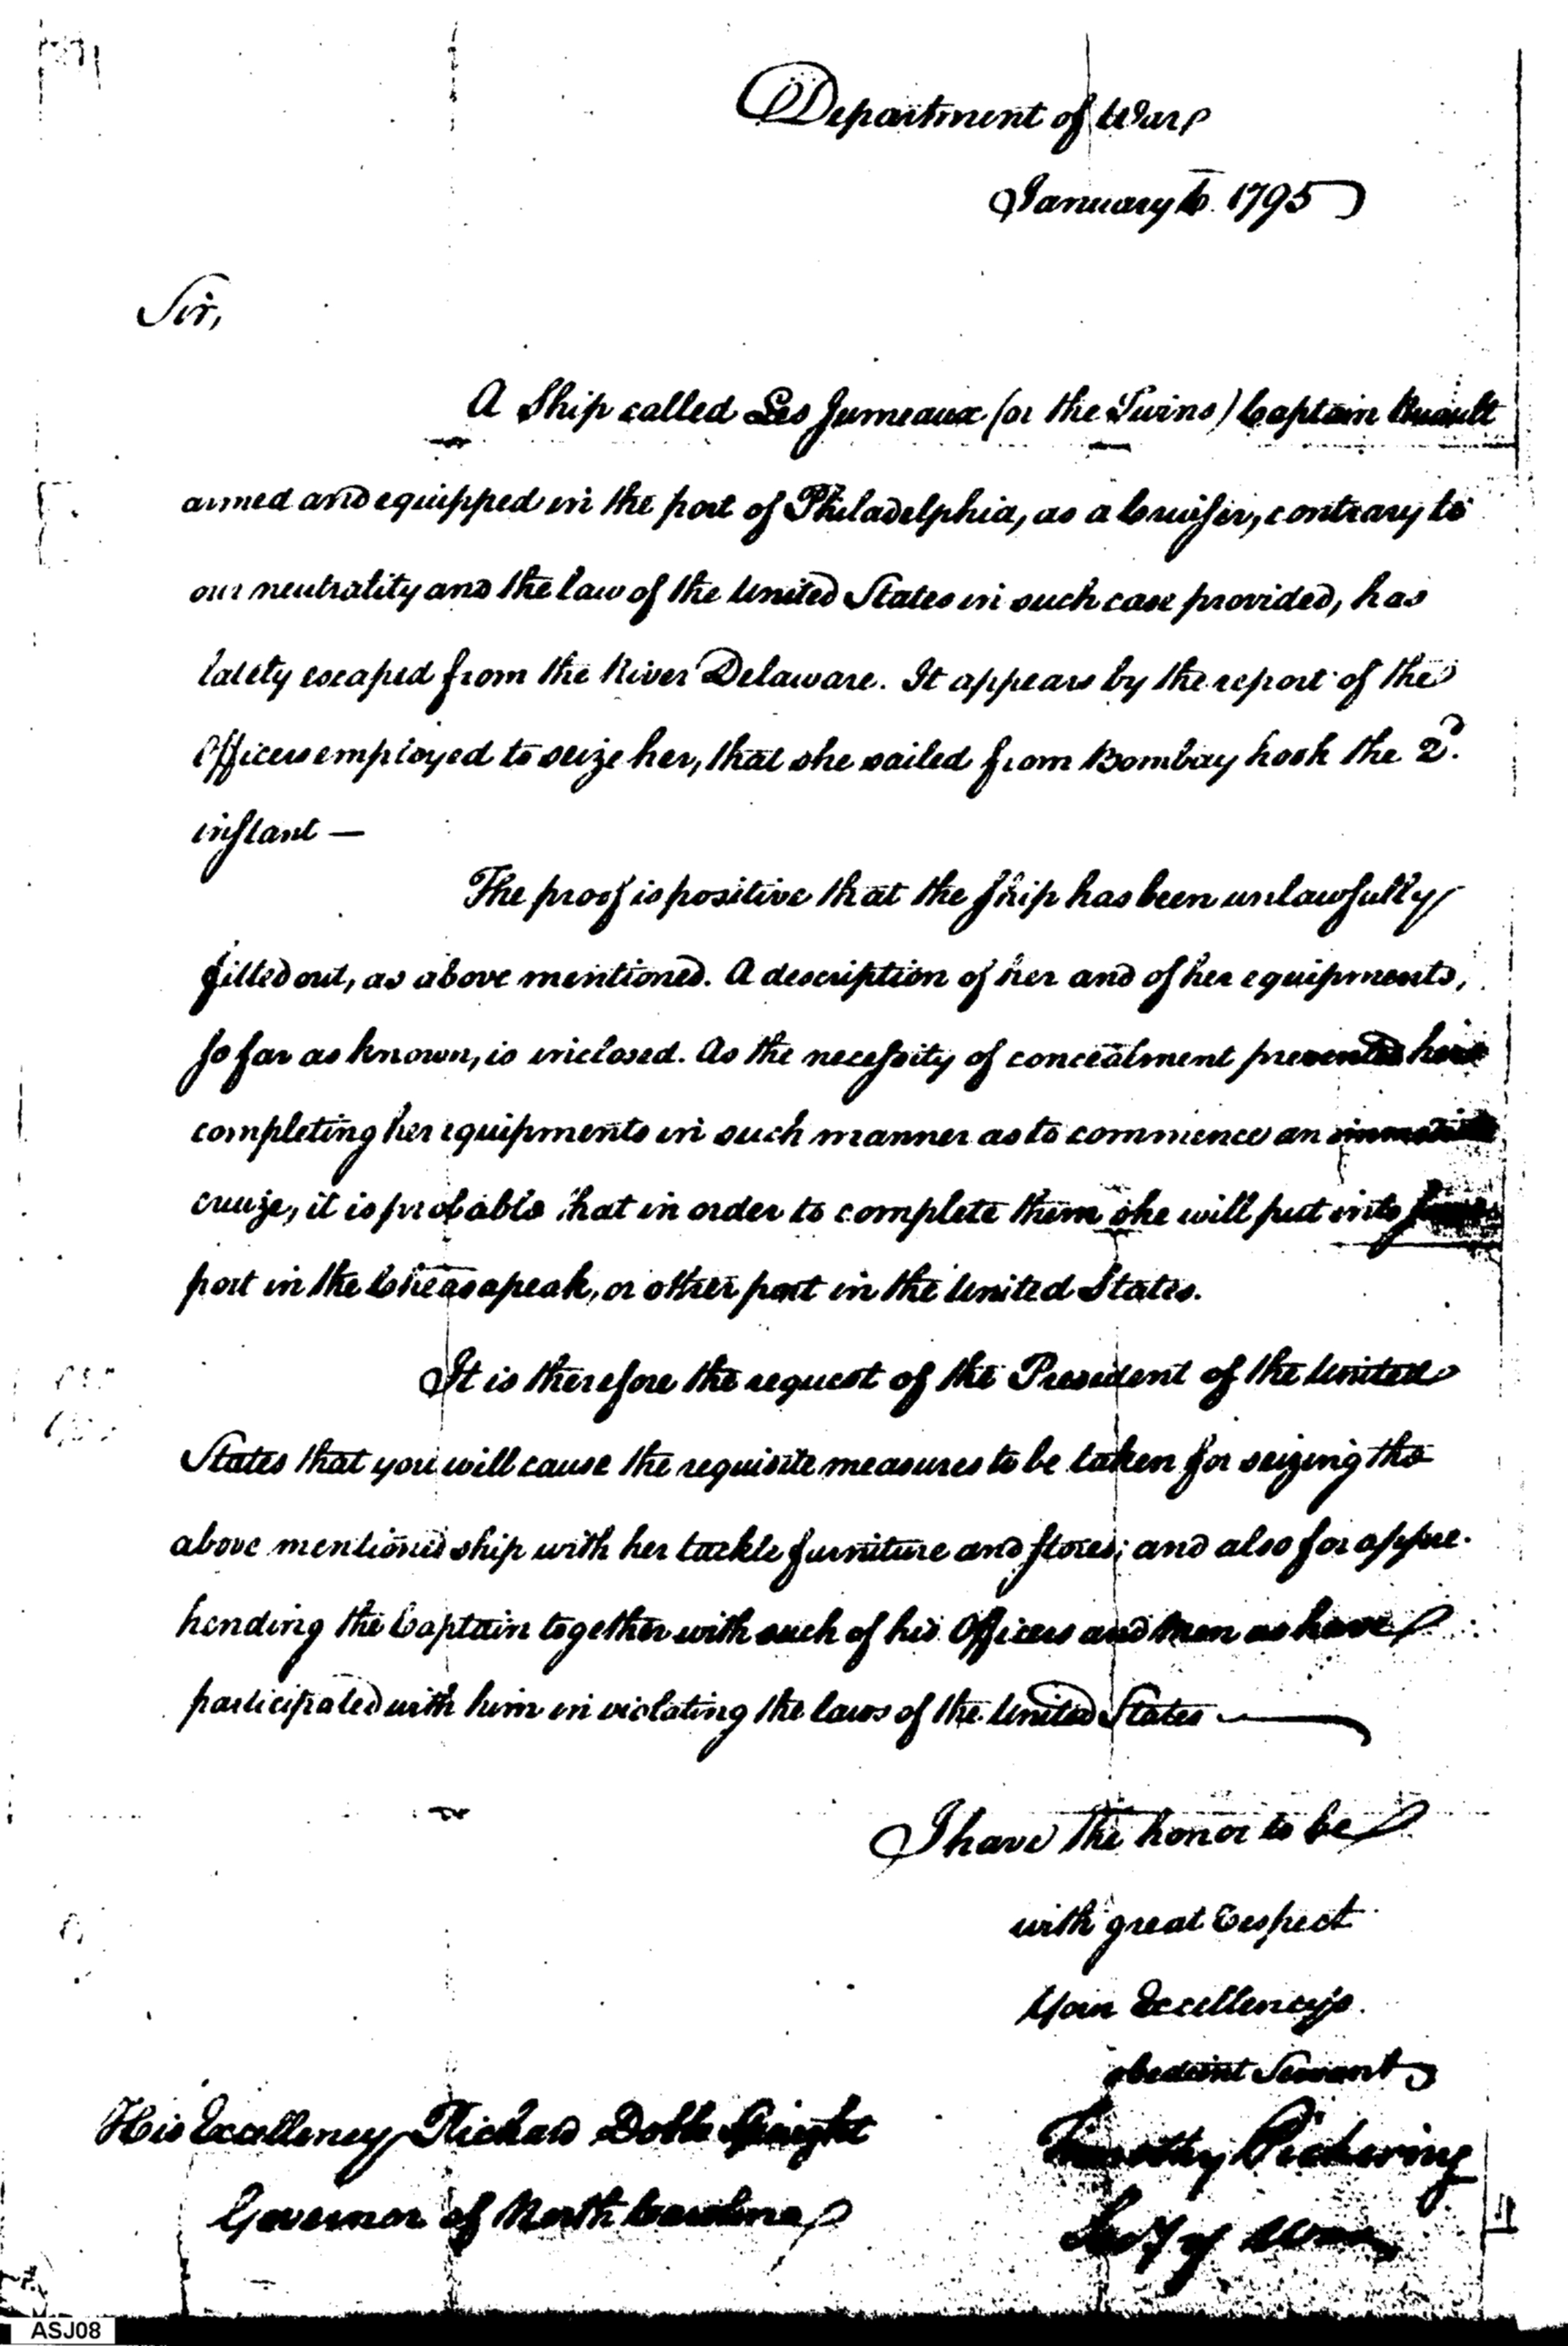 Department of War
January 6. 1795
Sir,
A Ship called Les Jumeaux (or the Twins) Captain Ruault
armed and equipped in the port of Philadelphia, as a Cruiser, contrary to
our neutrality and the law of the United States in such case provided, has
lately escaped from the River Delaware. It appears by the report of the
Officers employed to seize her, that she sailed from Bombay hook the 2d.
instant —
The proof is positive that the ship has been unlawfully
fitted out, as above mentioned. A description of her and of her equipments,
so far as known, is inclosed. As the necessity of concealment prevented here
completing her equipments in such manner as to commence an immediate
cruize, it is probable that in order to complete them she will put into some
port in the Cheasapeak, or other port in the United States.
It is therefore the request of the President of the United
States that you will cause the requisite measures to be taken for seizing the
above mentioned ship with her tackle furniture and stores; and also for appre-
hending the Captain together with such of his Officers and Men as have
participated with him in violating the laws of the United States
I have the honor to be
with great respect
Your Excellency's
obedient Servant
His Excellency Richard Dobbs Spaight
Timothy Pickering
Governor of North Carolina
Secy of War
ASJ08